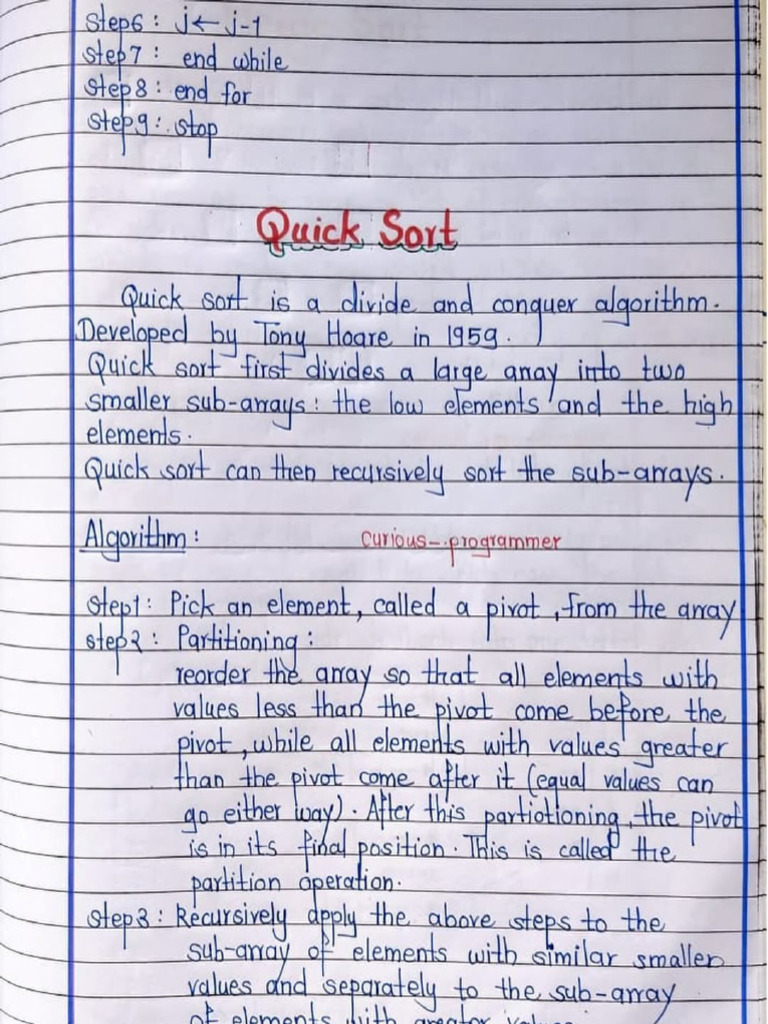 Step6: j ← j-1
step7: end while
Step8: end for
step9: stop
Quick Sort
Quick sort is a divide and conquer algorithm.
Developed by Tony Hoare in 1959.
Quick sort first divides a large array into two
smaller sub-arrays: the low elements and the high
elements.
Quick sort can then recursively sort the sub-arrays.
Algorithm:
curious--programmer
Step1: Pick an element, called a pivot, from the array
step2: Partitioning:
reorder the array so that all elements with
values less than the pivot come before the
pivot, while all elements with values greater
than the pivot come after it (equal values can
go either way). After this partiotioning, the pivot
is in its final position. This is called the
partition operation.
step3: Recursively apply the above steps to the
sub-array of elements with similar smaller
values and separately to the sub-array
of elements with greater values